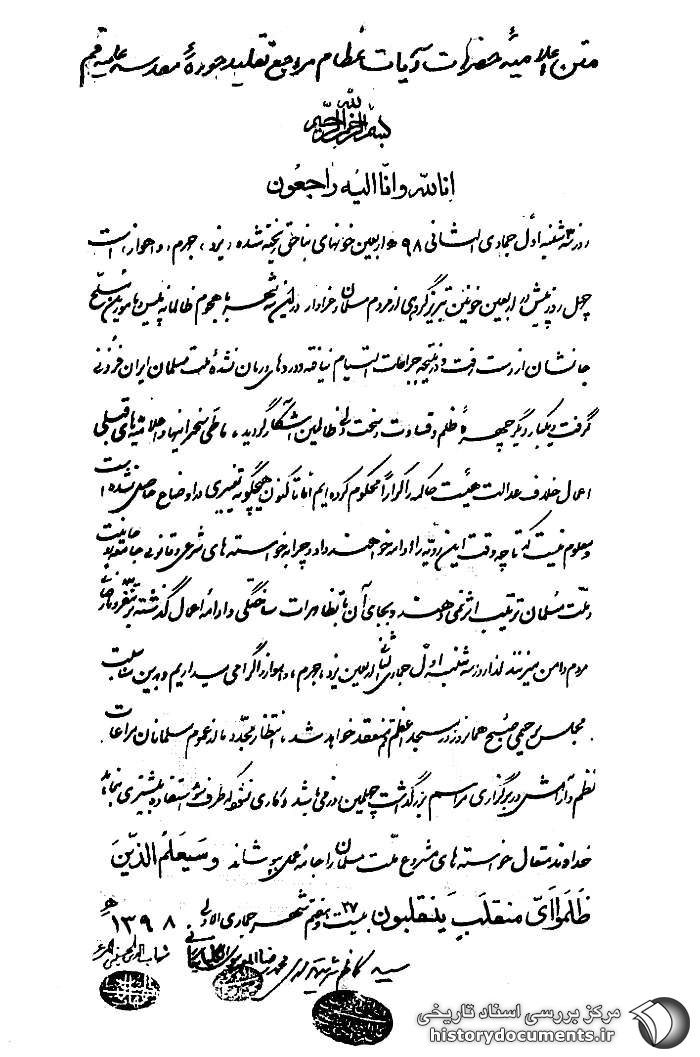 متن اعلامیهٔ حضرات آیات عظام مراجع تقلید حوزهٔ مقدسه علمیه قم
بسم الله الرحمن الرحیم
انا لله و انا الیه راجعون
روز سه شنبه اول جمادی الثانی ۹۸ اربعین خونهای بناحق ریخته شده، یزد، جهرم، و اهواز است
چهل روز پیش در اربعین خونین تبریز گروهی از مردم مسلمان عزادار در این شهرها با هجوم ظالمانه پلیس و مأمورین مسلح
جانشان از دست رفت و در نتیجه جراحات التیام نیافته و دردهای درمان نشدهٔ ملت مسلمان ایران فزونی
گرفت و یکبار دیگر چهره ظلم و قساوت و سخت دلی ظالمین آشکار گردید، ما طی سخنرانیها و اعلامیه های قبلی
اعمال خلاف عدالت هیئت حاکمه را کراراً محکوم کرده ایم اما تا کنون هیچگونه تغییری در اوضاع حاصل نشده است
و معلوم نیست که تا چه وقت این رویه را ادامه خواهند داد و چرا به خواسته های شرعی و قانونی جامعه روحانیت
و ملت مسلمان ترتیب اثر نمی دهند و بجای آن با تظاهرات ساختگی و ادامه اعمال گذشته بر تنفر و نارضائی
مردم دامن میزنند لذا روز سه شنبه اول جمادی الثانی اربعین یزد، جهرم، و اهواز را گرامی میداریم و بدین مناسبت
مجلس ترحیمی صبح همانروز در مسجد اعظم قم منعقد خواهد شد، انتظار مجدد ما از عموم مسلمانان مراعات
نظم و آرامش در برگزاری مراسم بزرگداشت چهلمین روز می باشد و کاری نشود که طرف سوء استفاده بیشتری بنماید
خداوند متعال خواسته های مشروع ملت مسلمان را جامه عمل بپوشاند و سیعلم الذین
ظلموا ای منقلب ینقلبون بیست و هفتم ۲۷ شهر جمادی الاولی ۱۳۹۸ ه
سید کاظم شریعتمداری محمد رضا الموسوی الگلپایگانی شهاب الدین الحسینی المرعشی
مرکز بررسی اسناد تاریخی
historydocuments.ir